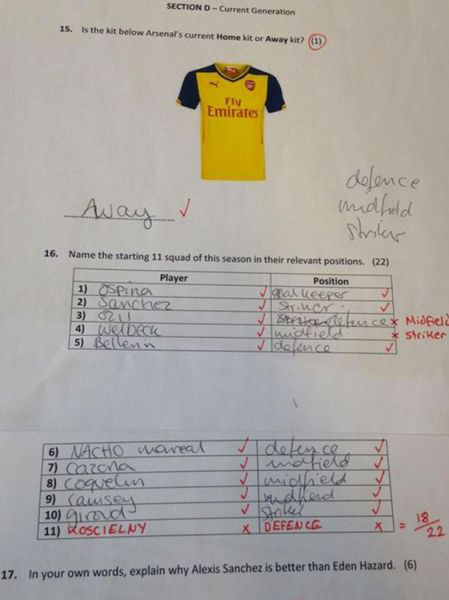 SECTION D – Current Generation
15. Is the kit below Arsenal's current Home kit or Away kit? (1)
Fly
Emirates
defence
midfield
striker
Away ✓
16. Name the starting 11 squad of this season in their relevant positions. (22)
Player Position
1) Ospina ✓ goalkeeper ✓
2) Sanchez ✓ Striker ✓
3) Ozil ✓ defence × Midfield
4) Welbeck ✓ midfield × striker
5) Bellerin ✓ defence ✓
6) NACHO monreal ✓ defence ✓
7) Cazorla ✓ midfield ✓
8) Coquelin ✓ midfield ✓
9) ramsey ✓ midfield ✓
10) giroud ✓ striker ✓
11) KOSCIELNY × DEFENCE × = 18/22
17. In your own words, explain why Alexis Sanchez is better than Eden Hazard. (6)